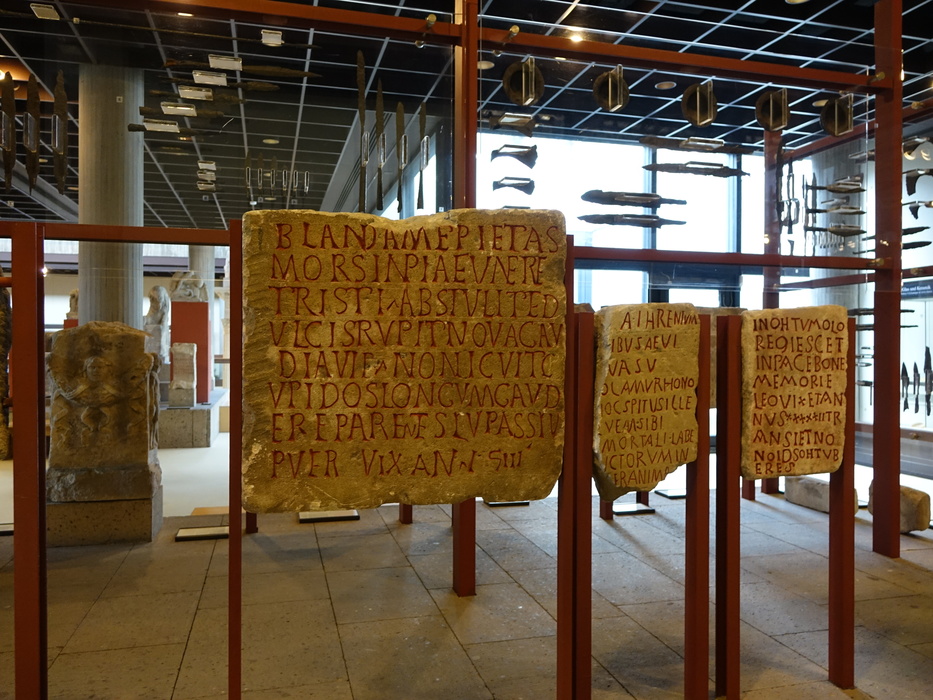 BLANDAMEPIETAS
MORSINPIAEVNERE
TRISTIABSTVLITED
VLCISRVPITNOVAGAV
DIAVITANONLICVITC
VPIDOSLONGVMGAVD
EREPARENTSLVPASSIV
PVER VIXANNSIII
A·IHRENIVM
IBVSAEVI
VASV
OLAMVRHONO
IOCSPITVSILLE
VEAMSIBI
MORTALI·LADE
ICTORVMIN
ERANIM
INOHTVMOLO
REQIESCET
INPACEBONE
MEMORIE
LEOVIXETAN
NVSXXXXIITR
ANSIETNO
NOIDSOHTVB
ERES